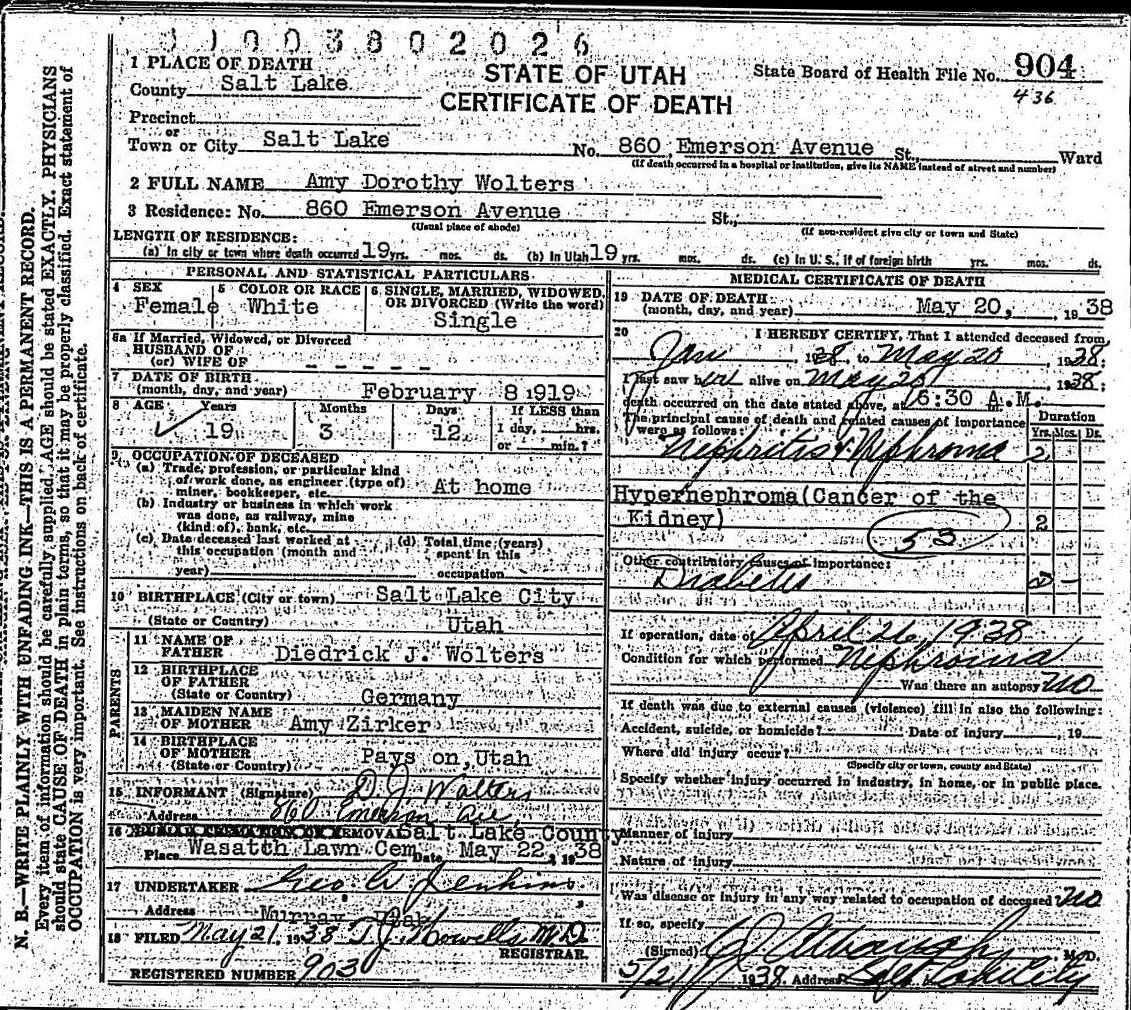 3 1 0 0 3 8 0 2 0 2 6
STATE OF UTAH
CERTIFICATE OF DEATH
State Board of Health File No. 904
436
1 PLACE OF DEATH
County Salt Lake
Precinct
or
Town or City Salt Lake No. 860 Emerson Avenue St., Ward
(If death occurred in a hospital or institution, give its NAME instead of street and number)
2 FULL NAME Amy Dorothy Wolters
3 Residence: No. 860 Emerson Avenue St.,
(Usual place of abode) (If non-resident give city or town and State)
LENGTH OF RESIDENCE:
(a) In city or town where death occurred 19 yrs. mos. ds. (b) In Utah 19 yrs. mos. ds. (c) In U. S., if of foreign birth yrs. mos. ds.
PERSONAL AND STATISTICAL PARTICULARS
4 SEX 5 COLOR OR RACE 6 SINGLE, MARRIED, WIDOWED,
OR DIVORCED (Write the word)
Female White Single
6a If Married, Widowed, or Divorced
HUSBAND OF
(or) WIFE OF - - - - -
7 DATE OF BIRTH
(month, day, and year) February 8 1919
8 AGE Years Months Days If LESS than
1 day, hrs.
or min.?
19 3 12
9 OCCUPATION OF DECEASED
(a) Trade, profession, or particular kind
of work done, as engineer (type of)
miner, bookkeeper, etc. At home
(b) Industry or business in which work
was done, as railway, mine
(kind of), bank, etc.
(c) Date deceased last worked at
this occupation (month and
year)
(d) Total time (years)
spent in this
occupation
10 BIRTHPLACE (City or town) Salt Lake City
(State or Country) Utah
PARENTS
11 NAME OF
FATHER Diedrick J. Wolters
12 BIRTHPLACE
OF FATHER
(State or Country) Germany
13 MAIDEN NAME
OF MOTHER Amy Zirker
14 BIRTHPLACE
OF MOTHER
(State or Country) Pays on, Utah
15 INFORMANT (Signature) D. J. Wolters
Address 860 Emerson Ave
16 BURIAL CREMATION OR REMOVAL Salt Lake County
Place Wasatch Lawn Cem Date May 22, 1938
17 UNDERTAKER Geo. W. Jenkins
Address Murray, Utah
18 FILED May 21 1938 T. J. Howells M.D.
REGISTRAR.
REGISTERED NUMBER 903
MEDICAL CERTIFICATE OF DEATH
19 DATE OF DEATH:
(month, day, and year) May 20, , 1938
20 I HEREBY CERTIFY, That I attended deceased from
Jan 1938, to May 20, 1938.
I last saw her alive on May 20, 1938;
death occurred on the date stated above, at 6:30 A.M.
The principal cause of death and related causes of importance
were as follows:
Duration
Yrs. Mos. Ds.
Nephritis & Nephroma 2
Hypernephroma (Cancer of the
Kidney) 2
53
Other contributory causes of importance:
Diabetes
If operation, date of April 26, 1938
Condition for which performed Nephroma
Was there an autopsy no
If death was due to external causes (violence) fill in also the following:
Accident, suicide, or homicide? Date of injury , 19
Where did injury occur?
(Specify city or town, county and State)
Specify whether injury occurred in industry, in home, or in public place.
Manner of injury
Nature of injury
Was disease or injury in any way related to occupation of deceased no
If so, specify
(Signed) M.D.
5/21 1938. Address Salt Lake City
N. B.—WRITE PLAINLY WITH UNFADING INK—THIS IS A PERMANENT RECORD.
Every item of information should be carefully supplied. AGE should be stated EXACTLY. PHYSICIANS
should state CAUSE OF DEATH in plain terms, so that it may be properly classified. Exact statement of
OCCUPATION is very important. See instructions on back of certificate.